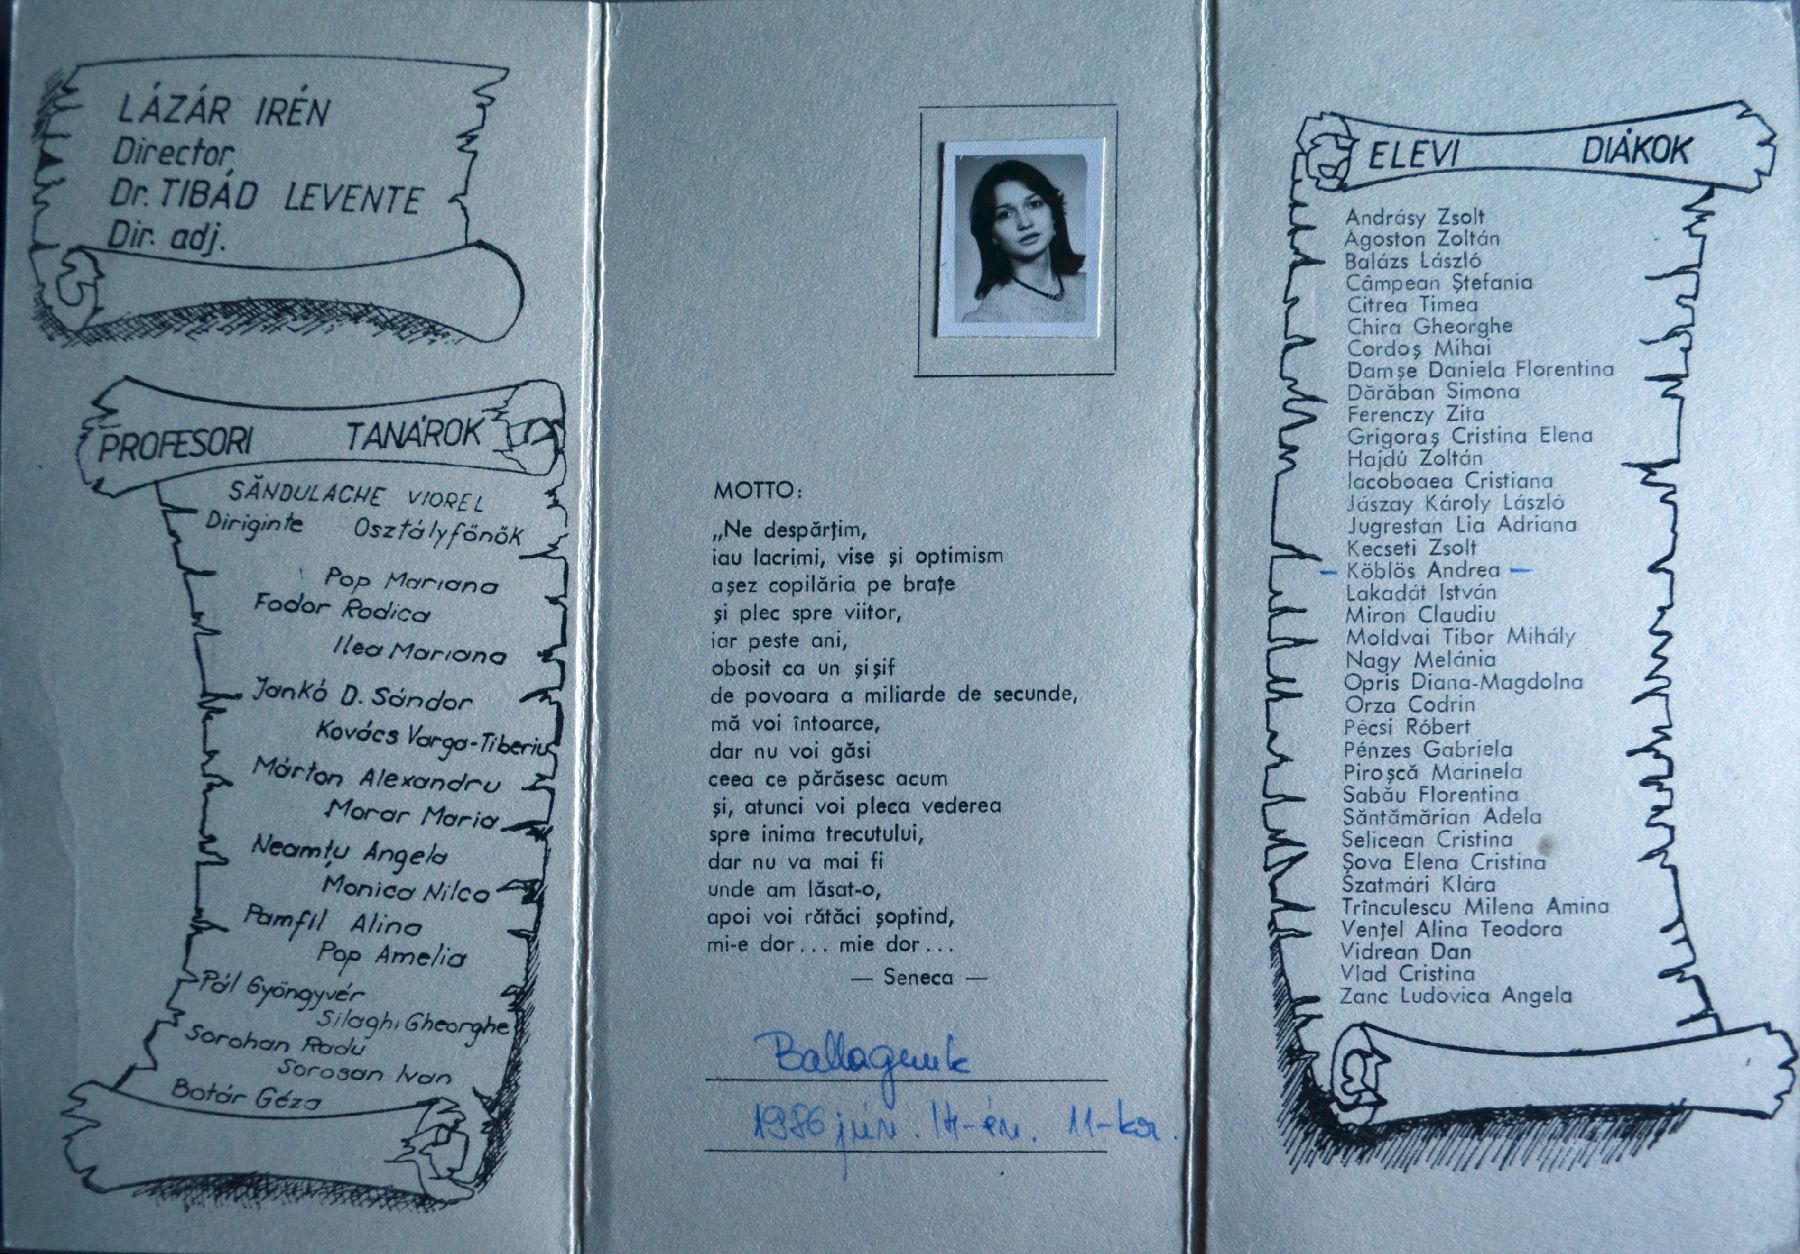 LÁZÁR IRÉN
Director,
Dr. TIBÁD LEVENTE
Dir. adj.
PROFESORI TANÁROK
SĂNDULACHE VIOREL
Diriginte Osztályfőnök
Pop Mariana
Fodor Rodica
Ilea Mariana
Jankó D. Sándor
Kovács Varga-Tiberiu
Márton Alexandru
Morar Maria
Neamțu Angela
Monica Nilca
Pamfil Alina
Pop Amelia
Pál Gyöngyvér
Silaghi Gheorghe
Sorohan Radu
Sorosan Ivan
Botár Géza
MOTTO:
„Ne despărțim,
iau lacrimi, vise și optimism
așez copilăria pe brațe
și plec spre viitor,
iar peste ani,
obosit ca un șișif
de povoara a miliarde de secunde,
mă voi întoarce,
dar nu voi găsi
ceea ce părăsesc acum
și, atunci voi pleca vederea
spre inima trecutului,
dar nu va mai fi
unde am lăsat-o,
apoi voi rătăci șoptind,
mi-e dor... mie dor...
— Seneca —
Ballagunk
1986 jún. 14-én. 11-kor.
ELEVI DIÁKOK
Andrásy Zsolt
Ágoston Zoltán
Balázs László
Câmpean Ștefania
Citrea Timea
Chira Gheorghe
Cordoș Mihai
Damșe Daniela Florentina
Dărăban Simona
Ferenczy Zita
Grigoraș Cristina Elena
Hajdú Zoltán
Iacoboaea Cristiana
Jászay Károly László
Jugrestan Lia Adriana
Kecseti Zsolt
– Köblös Andrea –
Lakadát István
Miron Claudiu
Moldvai Tibor Mihály
Nagy Melánia
Opris Diana-Magdolna
Orza Codrin
Pécsi Róbert
Pénzes Gabriela
Piroșcă Marinela
Sabău Florentina
Săntămărian Adela
Selicean Cristina
Șova Elena Cristina
Szatmári Klára
Trînculescu Milena Amina
Vențel Alina Teodora
Vidrean Dan
Vlad Cristina
Zanc Ludovica Angela